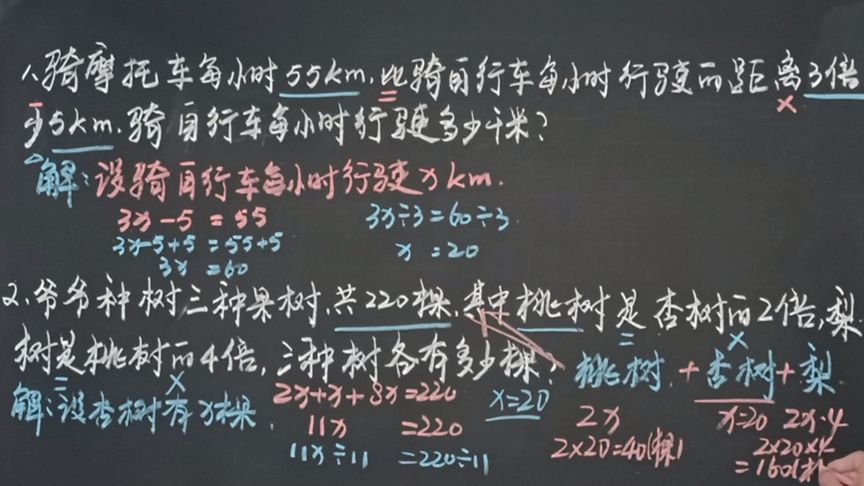 1、骑摩托车每小时55km,比骑自行车每小时行驶的距离3倍
少5km.骑自行车每小时行驶多少千米?
解:设骑自行车每小时行驶xkm.
3x-5=55
3x÷3=60÷3
3x-5+5=55+5
x=20
3x=60
2、爷爷种树三种果树,共220棵,其中桃树是杏树的2倍,梨
树是桃树的4倍,三种树各有多少棵?
桃树+杏树+梨
解:设杏树有x棵
2x+x+8x=220
x=20
2x
x=20 2x·4
11x=220
2×20=40(棵)
2×20×4
11x÷11=220÷11
=160(棵